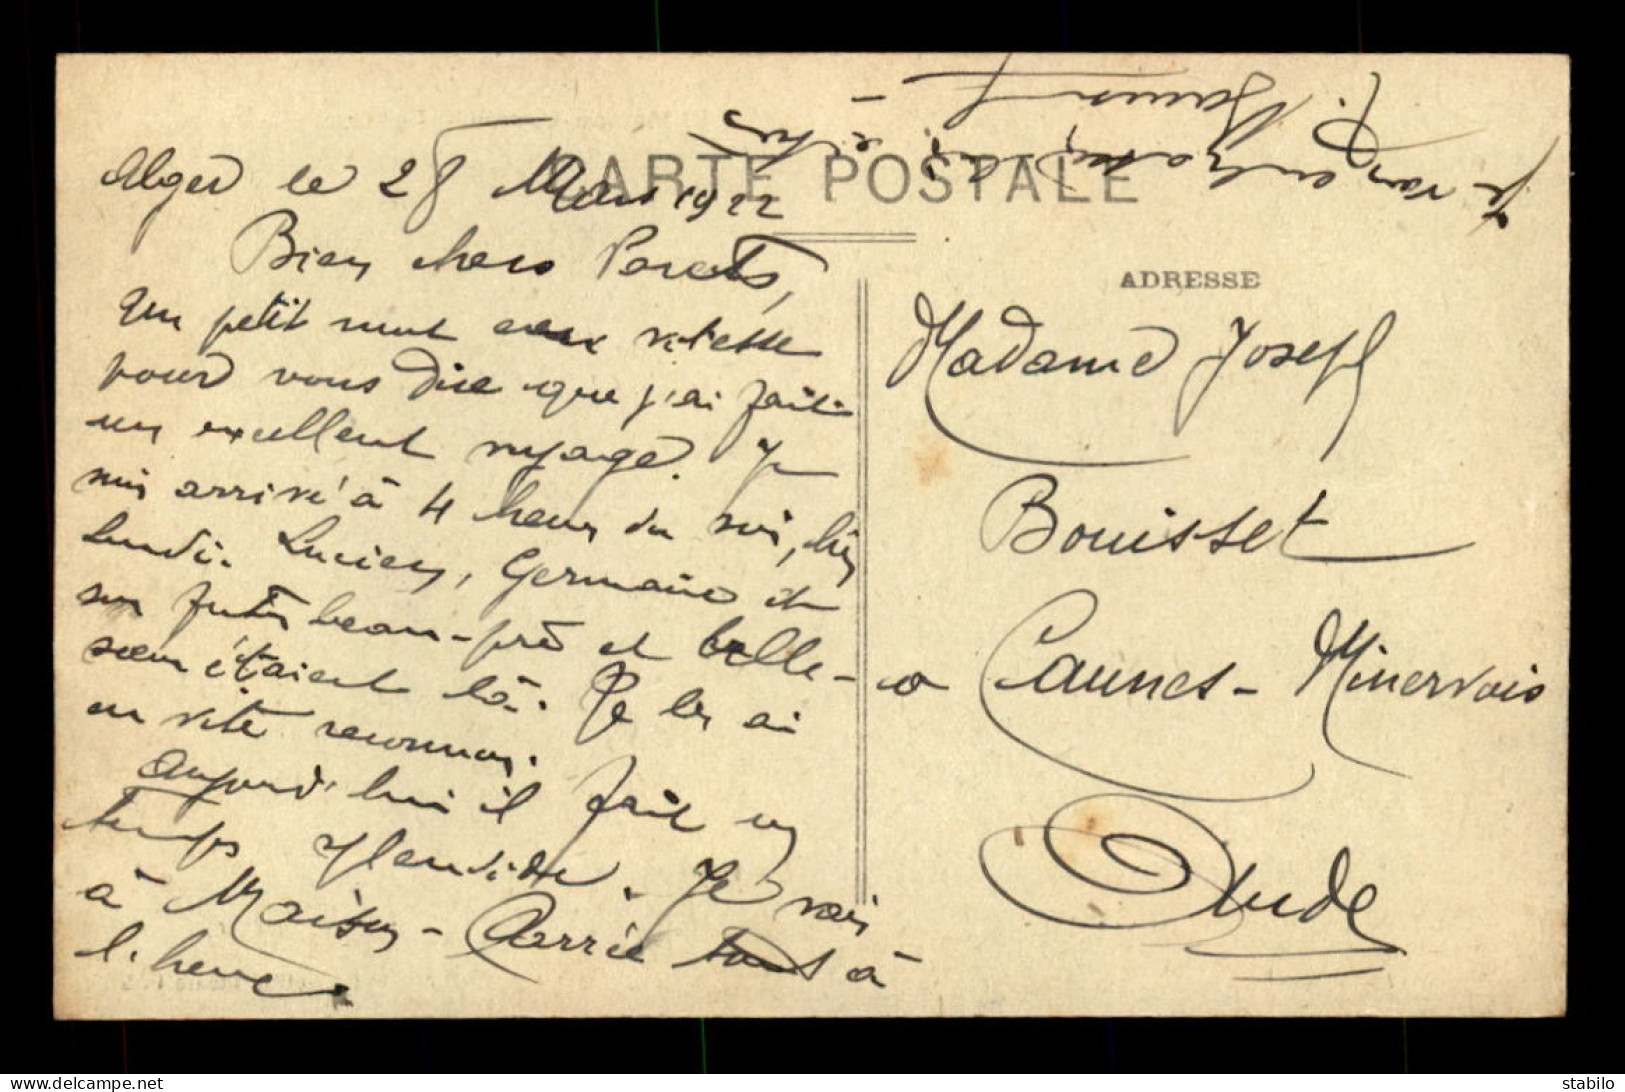 CARTE POSTALE
Alger le 28 Mars 1922
Bien chers Parents,
Un petit mot vitesse
pour vous dire que j'ai fait
un excellent voyage. Je
suis arrivé à 4 heures du soir, hier
Lundi. Lucien, Germaine et
son futur beau-père et belle-
sœur étaient là. Je les ai
en vite reconnus.
Aujourd'hui il fait un
temps splendide. Je vais
à Maison-Carrée tout à
l'heure.
Je vous embrasse
ADRESSE
Madame Joseph
Bouisset
à Caunes-Minervois
Aude
stabilo